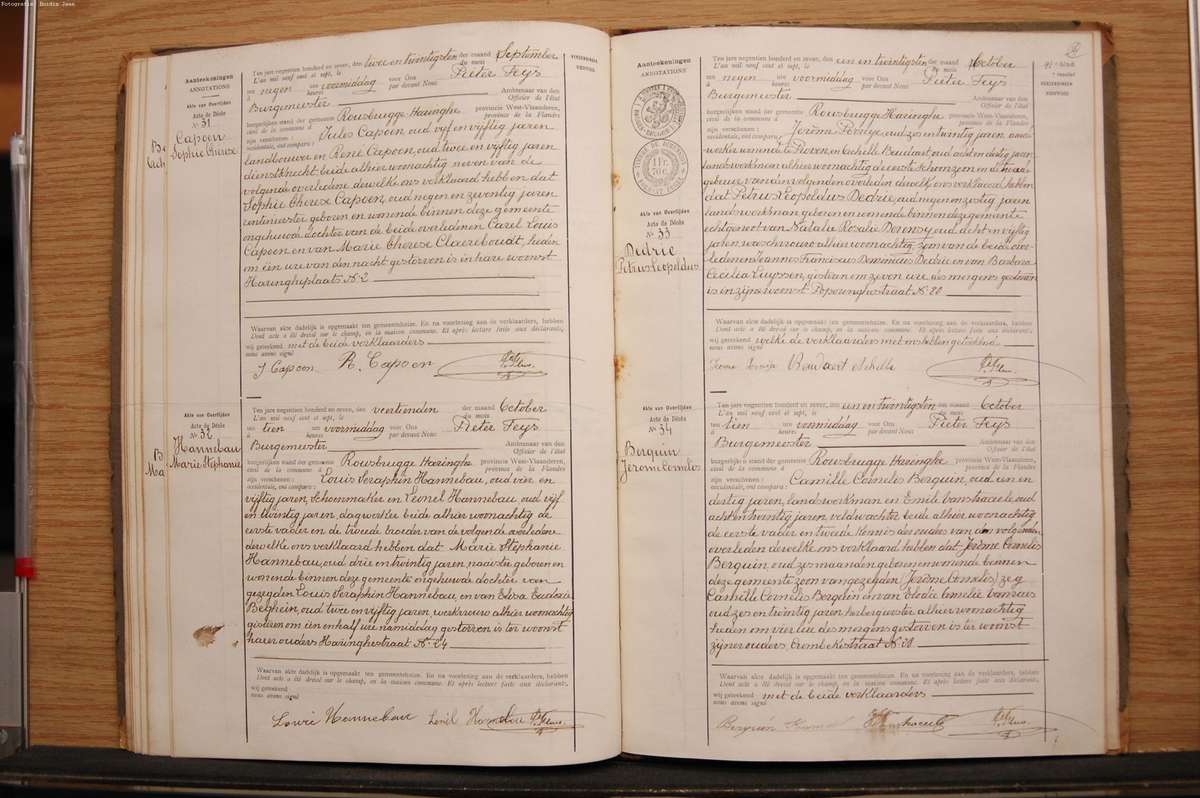 Fotografie: Buidin Jean
Aanteekeningen
ANNOTATIONS
Akte van Overlijden
Acte de Décès
N. 31
Capoen
Sophie Therese
Ten jare negentien honderd en zeven, den twee en twintigsten der maand September
L'an mil neuf cent et sept, le du mois
um negen ure voormiddag voor Ons Pieter Feys
à heures par devant Nous
Burgemeester Ambtenaar van den
Officier de l'état
burgerlijken stand der gemeente Rousbrugge Haringhe provincie West-Vlaanderen,
civil de la commune à province de la Flandre
zijn verschenen: Jules Capoen oud vijf en vijftig jaren
occidentale, ont comparu:
landbouwer en René Capoen, oud twee en vijftig jaren
dienstknecht beide alhier woonachtig neven van de
volgende overledene dewelke ons verklaard hebben dat
Sophie Therese Capoen, oud negen en zeventig jaren
rentenierster geboren en wonende binnen deze gemeente
ongehuwde dochter van de beide overledenen Carel Louis
Capoen en van Marie Therese Claereboudt, heden
om een ure van den nacht gestorven is in hare woonst
Haringheplaats N. 2
Waarvan akte dadelijk is opgemaakt ten gemeentehuize. En na voorlezing aan de verklaarders, hebben
Dont acte a été dressé sur le champ, en la maison commune. Et après lecture faite aux déclarants,
wij geteekend met de beide verklaarders
nous avons signé
J Capoen R. Capoen
Akte van Overlijden
Acte de Décès
N. 32
Hannebau
Marie Stephanie
Ten jare negentien honderd en zeven, den veertienden der maand October
L'an mil neuf cent et sept, le du mois
um tien ure voormiddag voor Ons Pieter Feys
à heures par devant Nous
Burgemeester Ambtenaar van den
Officier de l'état
burgerlijken stand der gemeente Rousbrugge Haringhe provincie West-Vlaanderen,
civil de la commune à province de la Flandre
zijn verschenen: Louis Seraphin Hannebau, oud vier en
occidentale, ont comparu:
vijftig jaren, schoenmaker en Leonel Hannebau, oud vijf
en twintig jaren, dagwerker beide alhier woonachtig de
eerste vader en de tweede broeder van de volgende overledene
dewelke ons verklaard hebben dat Marie Stephanie
Hannebau, oud drie en twintig jaren naaister geboren en
wonende binnen deze gemeente ongehuwde dochter van
gezegden Louis Seraphin Hannebau, en van
Beghein, oud twee en vijftig jaren, werkvrouw alhier woonachtig
gisteren om een en half ure namiddag gestorven is ter woonst
harer ouders Haringhestraat N. 24
Waarvan akte dadelijk is opgemaakt ten gemeentehuize. En na voorlezing aan de verklaarders, hebben
Dont acte a été dressé sur le champ, en la maison commune. Et après lecture faite aux déclarants,
wij geteekend
nous avons signé
Lowie Hannebau
Aanteekeningen
ANNOTATIONS
1 Fr.
Akte van Overlijden
Acte de Décès
N. 33
Dedrie
Petrus Leopoldus
Ten jare negentien honderd en zeven, den een en twintigsten der maand October
L'an mil neuf cent et sept, le du mois
um negen ure voormiddag voor Ons Pieter Feys
à heures par devant Nous
Burgemeester Ambtenaar van den
Officier de l'état
burgerlijken stand der gemeente Rousbrugge Haringhe provincie West-Vlaanderen,
civil de la commune à province de la Flandre
zijn verschenen: Jerôme oud zes en twintig jaren
occidentale, ont comparu:
werker wonende te Proven en Achille Baudaert, oud acht en dertig jaren
landswerkman alhier woonachtig de eerste en de tweede
gebuur van den volgenden overleden dewelke ons verklaard hebben
dat Petrus Leopoldus Dedrie oud negen en zestig jaren
landswerkman geboren en wonende binnen deze gemeente
echtgenoot van Natalie Rosalie oud acht en vijftig
jaren, waschvrouw alhier woonachtig, zoon van de beide over-
ledenen Joannes Franciscus Dominicus Dedrie en van Barbara
Cecilia Luyssen, gisteren om zeven ure des morgens gestorven
is in zijne woonst Poperinghestraat N. 20
Waarvan akte dadelijk is opgemaakt ten gemeentehuize. En na voorlezing aan de verklaarders, hebben
Dont acte a été dressé sur le champ, en la maison commune. Et après lecture faite aux déclarants,
wij geteekend welke de verklaarders met ons hebben geteekend
nous avons signé
Achille
Akte van Overlijden
Acte de Décès
N. 34
Berquin
Jerome Cornelis
Ten jare negentien honderd en zeven, den een en twintigsten der maand October
L'an mil neuf cent et sept, le du mois
um tien ure voormiddag voor Ons Pieter Feys
à heures par devant Nous
Burgemeester Ambtenaar van den
Officier de l'état
burgerlijken stand der gemeente Rousbrugge Haringhe provincie West-Vlaanderen,
civil de la commune à province de la Flandre
zijn verschenen: Camille Cornelis Berquin, oud een en
occidentale, ont comparu:
dertig jaren, landswerkman en Emile oud
acht en twintig jaren, veldwachter beide alhier woonachtig
de eerste vader en tweede kennis der ouders van den volgenden
overleden dewelke ons verklaard hebben dat Jerôme Cornelis
Berquin, oud zes maanden geboren en wonende binnen
deze gemeente zoon van gezegden (Jerôme Cornelis) zeg
Camille Cornelis Berquin en van Elodie Emelie
oud zes en twintig jaren herbergierster alhier woonachtig
heden om vier ure des morgens gestorven is ter woonst
zijner ouders, Crombekestraat N. 20
Waarvan akte dadelijk is opgemaakt ten gemeentehuize. En na voorlezing aan de verklaarders, hebben
Dont acte a été dressé sur le champ, en la maison commune. Et après lecture faite aux déclarants,
wij geteekend met de beide verklaarders
nous avons signé
Berquin